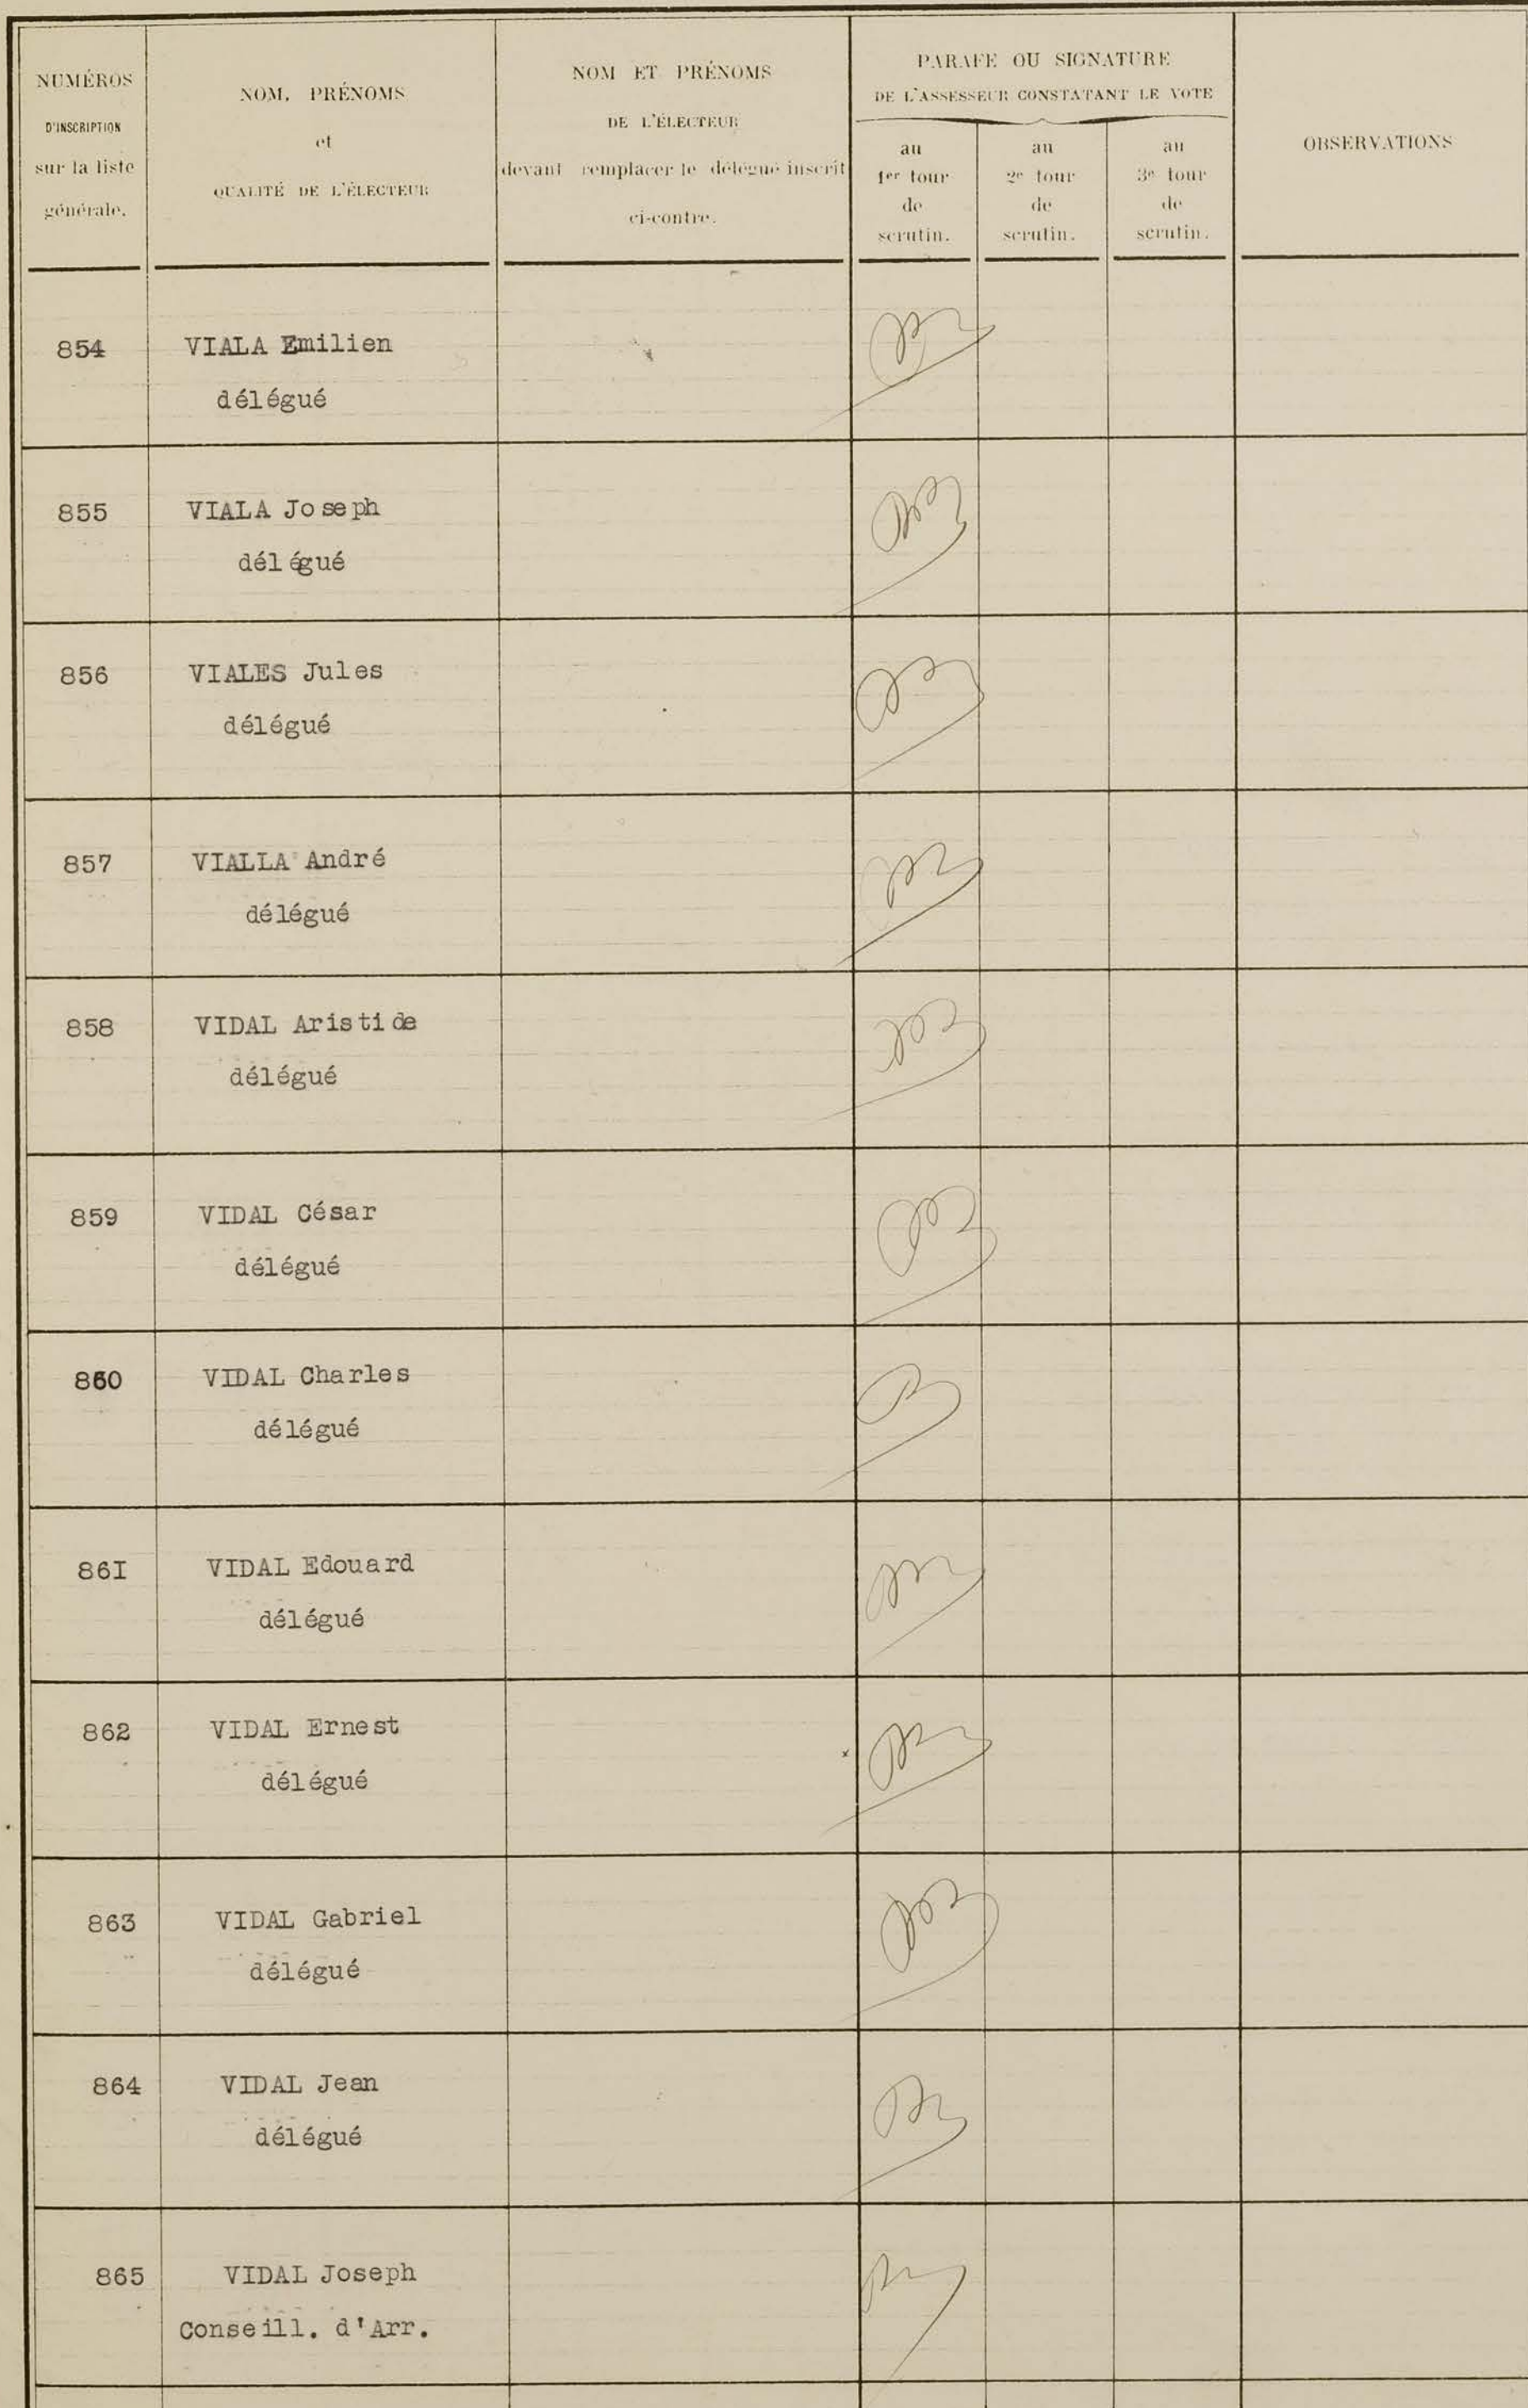 NUMÉROS
D'INSCRIPTION
sur la liste
générale.
NOM, PRÉNOMS
et
QUALITÉ DE L'ÉLECTEUR
NOM ET PRÉNOMS
DE L'ÉLECTEUR
devant remplacer le délégué inscrit
ci-contre.
PARAFE OU SIGNATURE
DE L'ASSESSEUR CONSTATANT LE VOTE
au
1er tour
de
scrutin.
au
2e tour
de
scrutin.
au
3e tour
de
scrutin.
OBSERVATIONS
854 VIALA Emilien
délégué
855 VIALA Joseph
délégué
856 VIALES Jules
délégué
857 VIALLA André
délégué
858 VIDAL Aristide
délégué
859 VIDAL César
délégué
860 VIDAL Charles
délégué
86I VIDAL Edouard
délégué
862 VIDAL Ernest
délégué
863 VIDAL Gabriel
délégué
864 VIDAL Jean
délégué
865 VIDAL Joseph
Conseill. d'Arr.